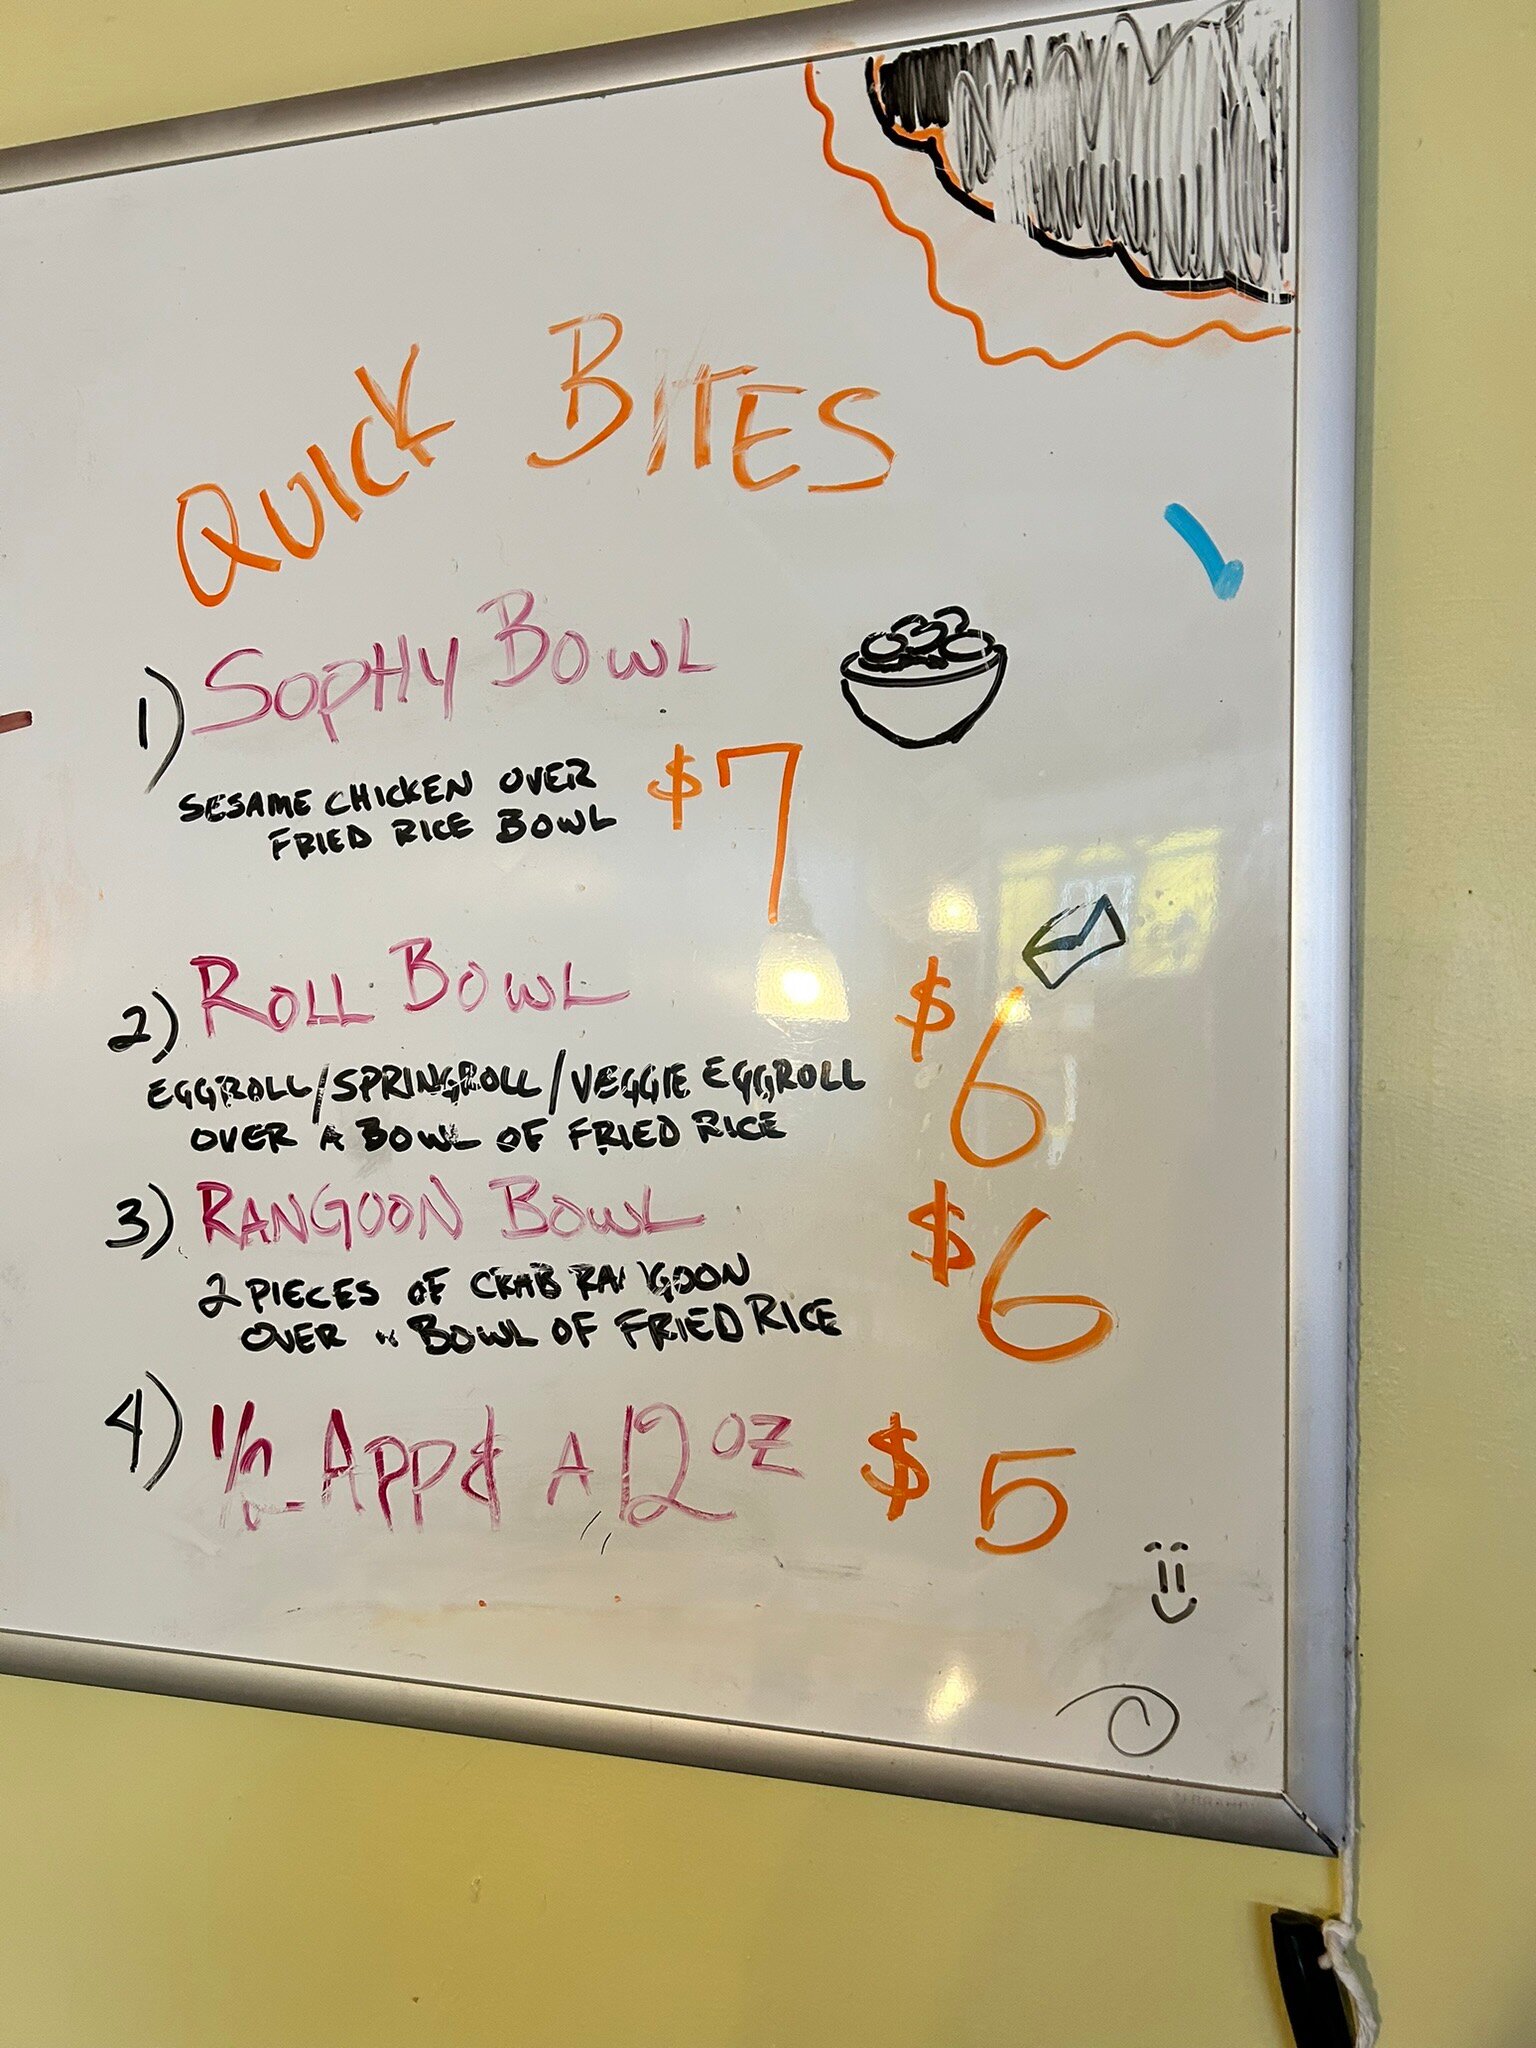 QUICK BITES
1) SOPHY BOWL
SESAME CHICKEN OVER
FRIED RICE BOWL
$7
2) ROLL BOWL
$6
EGGROLL/SPRINGROLL/VEGGIE EGGROLL
OVER A BOWL OF FRIED RICE
3) RANGOON BOWL
$6
2 PIECES OF CRAB RANGOON
OVER A BOWL OF FRIED RICE
4) 1/2 APP & A 12 OZ $5